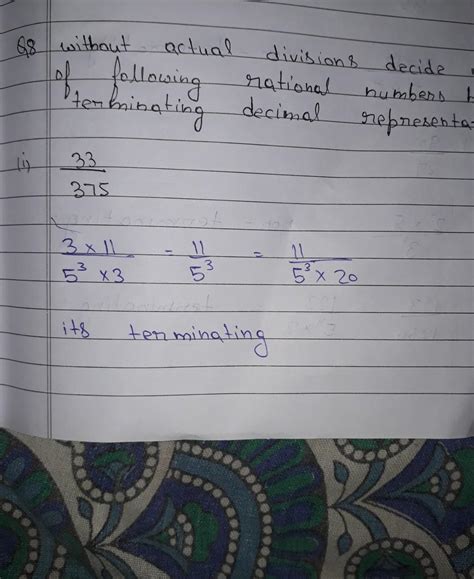 Q8 without actual divisions decide
of following rational numbers
terminating decimal representa
(i) 33/375
3 × 11 / 5³ × 3 = 11 / 5³ = 11 / 5³ × 20
its terminating